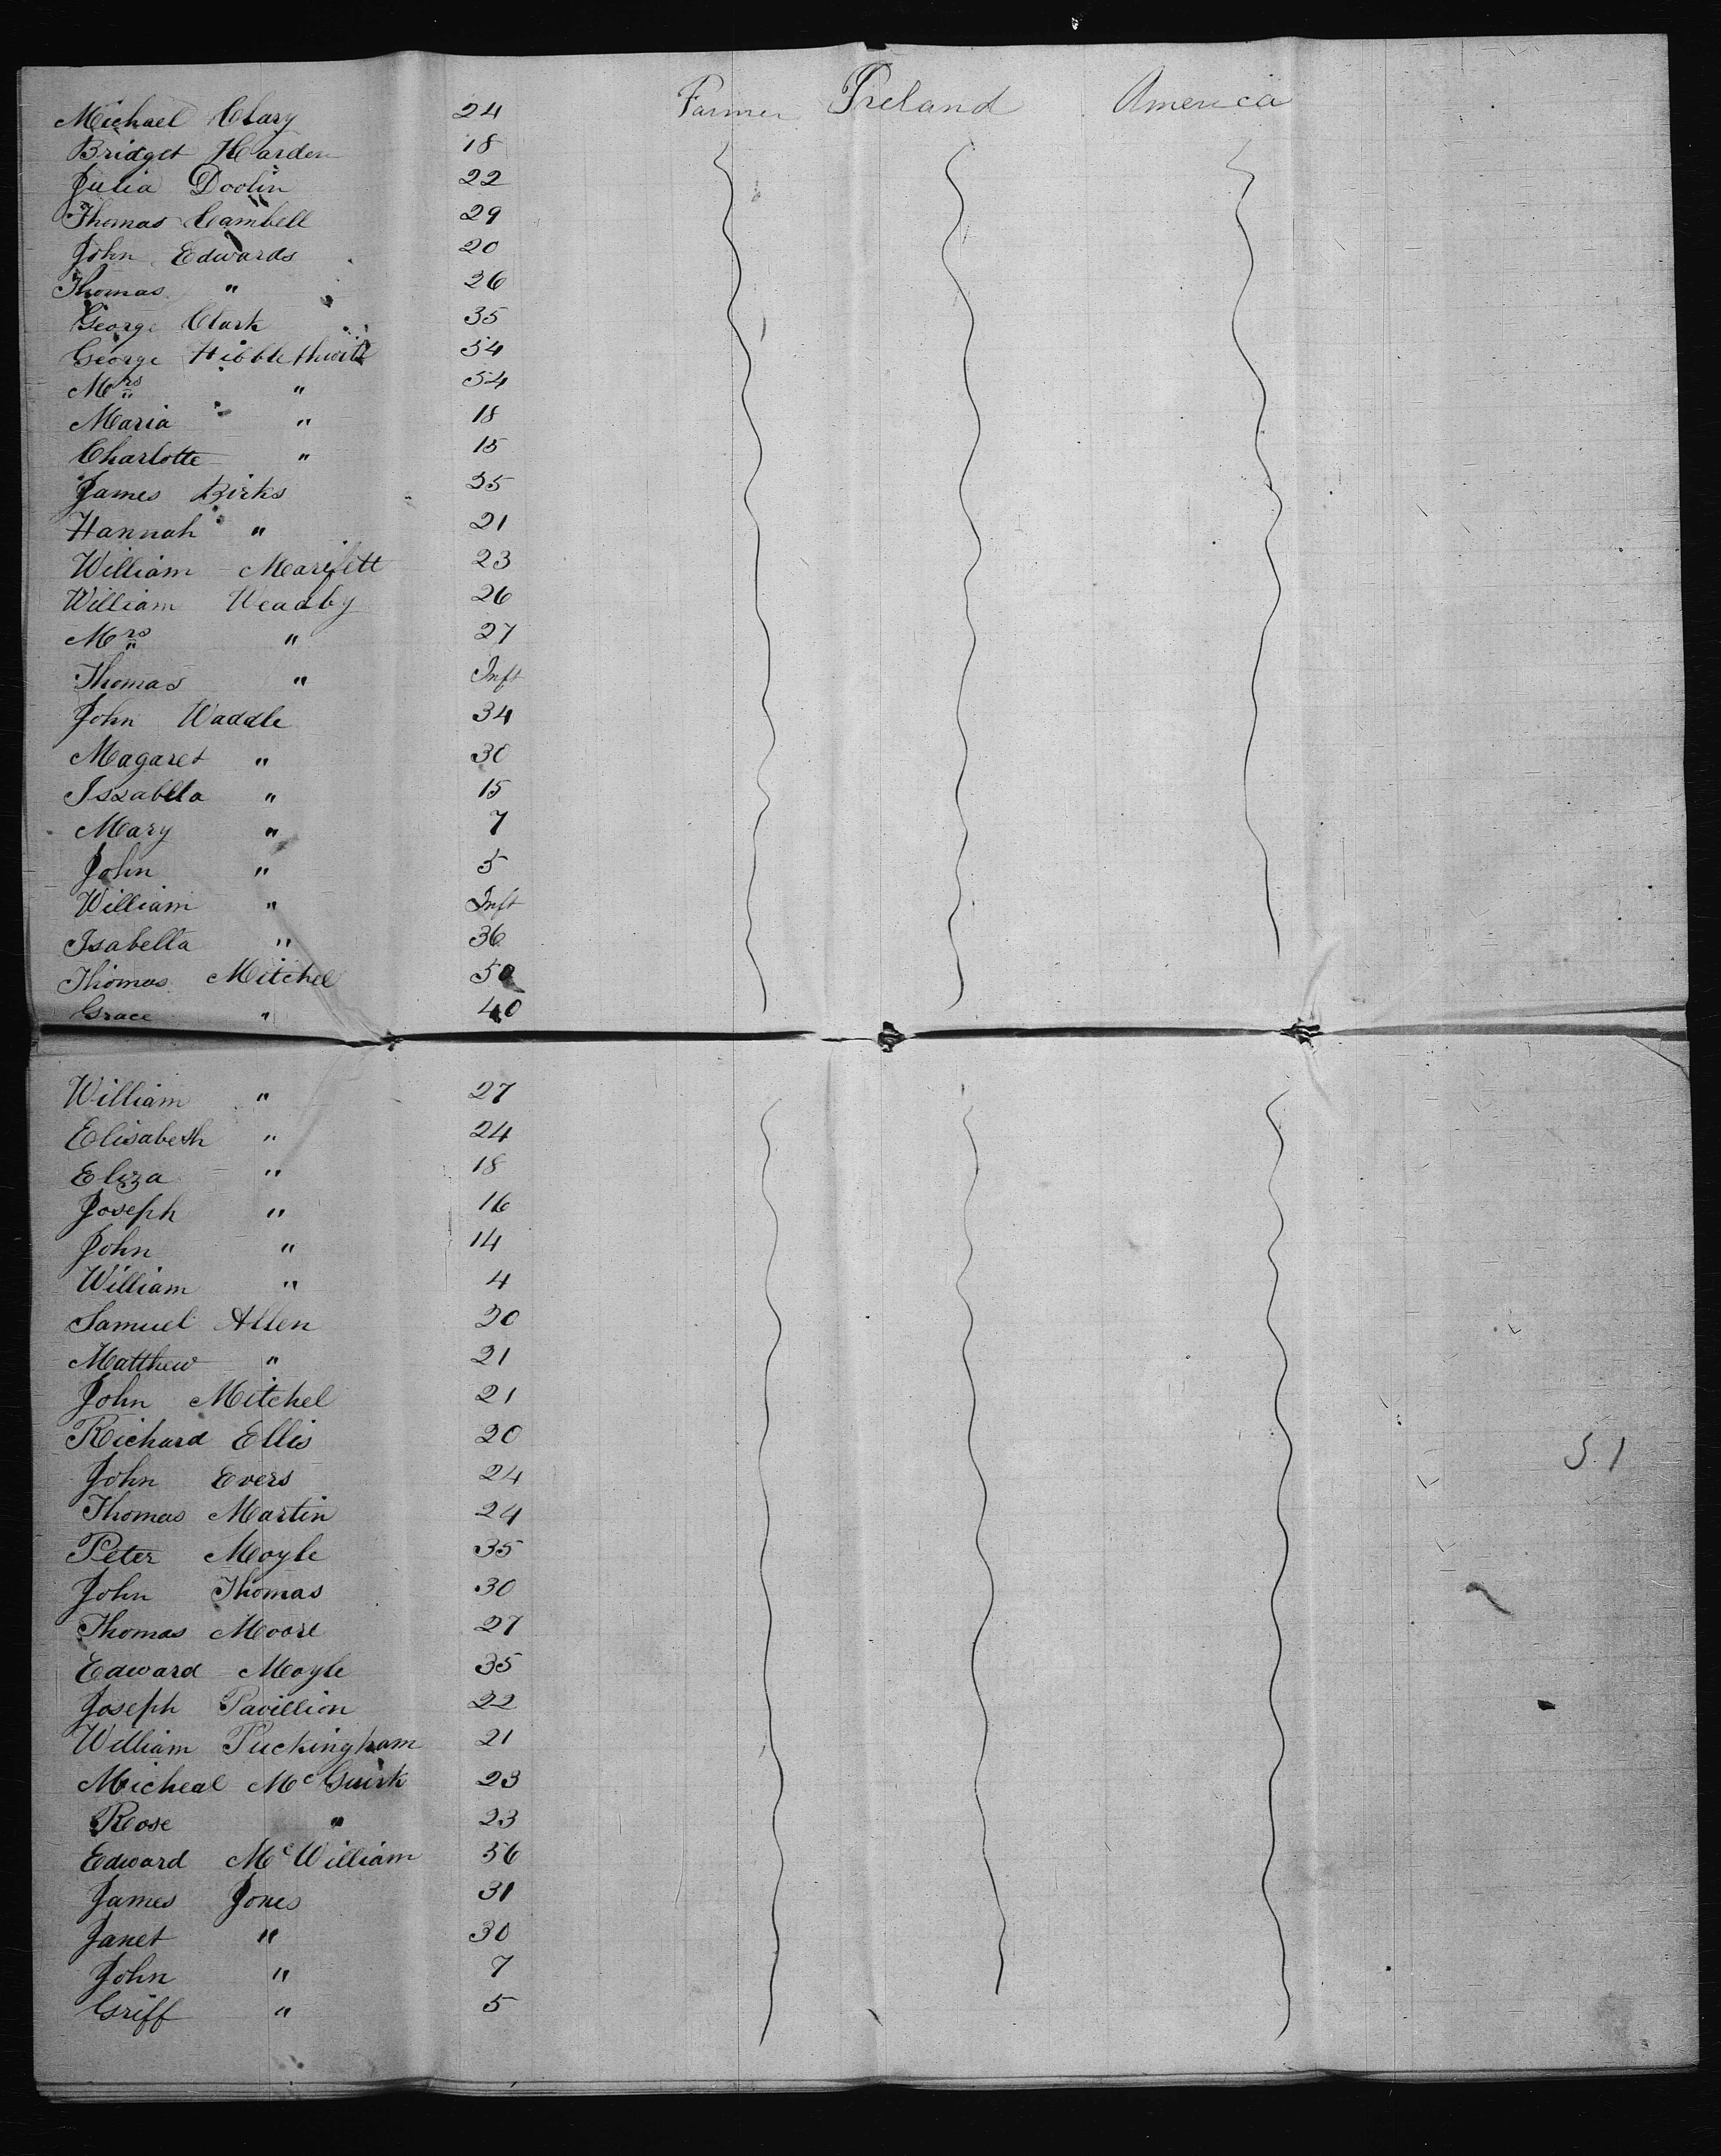 Michael Clary 24 Farmer Ireland America
Bridget Harden 18
Julia Doolin 22
Thomas Cambell 29
John Edwards 20
Thomas " 26
George Clark 35
George Hibblethwite 54
Mrs " 54
Maria " 18
Charlotte " 15
James Birks 25
Hannah " 21
William 23
William 26
Mrs " 27
Thomas " Inft
John Waddle 34
Magaret " 30
Issabella " 15
Mary " 7
John " 5
William " Inft
Isabella " 36
Thomas Mitchel 50
Grace " 40
William " 27
Elisabeth " 24
Eliza " 18
Joseph " 16
John " 14
William " 4
Samuel Allen 20
Matthew " 21
John Mitchel 21
Richard Ellis 20
John Evers 24
Thomas Martin 24
Peter Moyle 35
John Thomas 30
Thomas Moore 27
Edward Moyle 35
Joseph Pavillion 22
William Puckingham 21
Micheal McGuirk 23
Rose " 23
Edward McWilliam 36
James Jones 31
Janet " 30
John " 7
Griff " 5
51